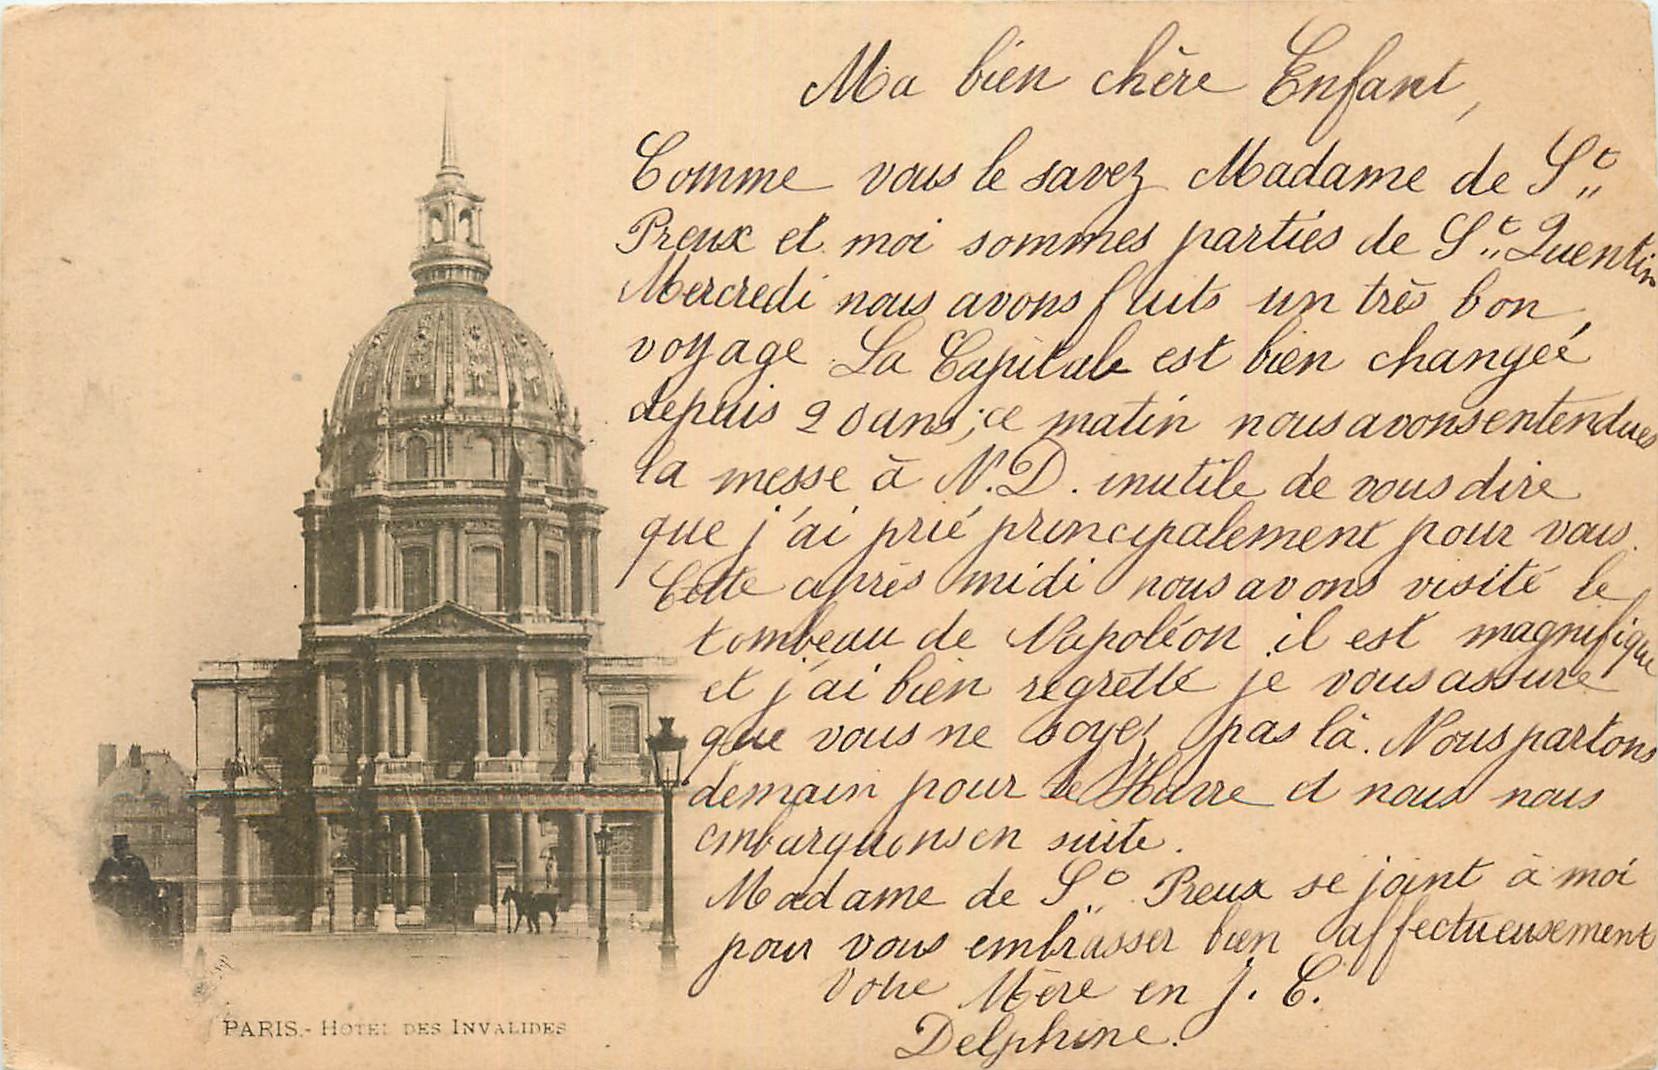 Ma bien chère Enfant,
Comme vous le savez Madame de St
Preux et moi sommes parties de St Quentin
Mercredi nous avons fuits un très bon
voyage. La Capitale est bien changée
depuis 20 ans; ce matin nous avons entendues
la messe à N.D. inutile de vous dire
que j'ai prié principalement pour vous.
Cette après midi nous avons visité le
tombeau de Napoléon il est magnifique
et j'ai bien regretté je vous assure
que vous ne soyez pas là. Nous partons
demain pour le Havre et nous nous
embarquons en suite.
Madame de St Preux se joint à moi
pour vous embrasser bien affectueusement
Votre Mère en J. C.
Delphine.
PARIS.- HOTEL DES INVALIDES